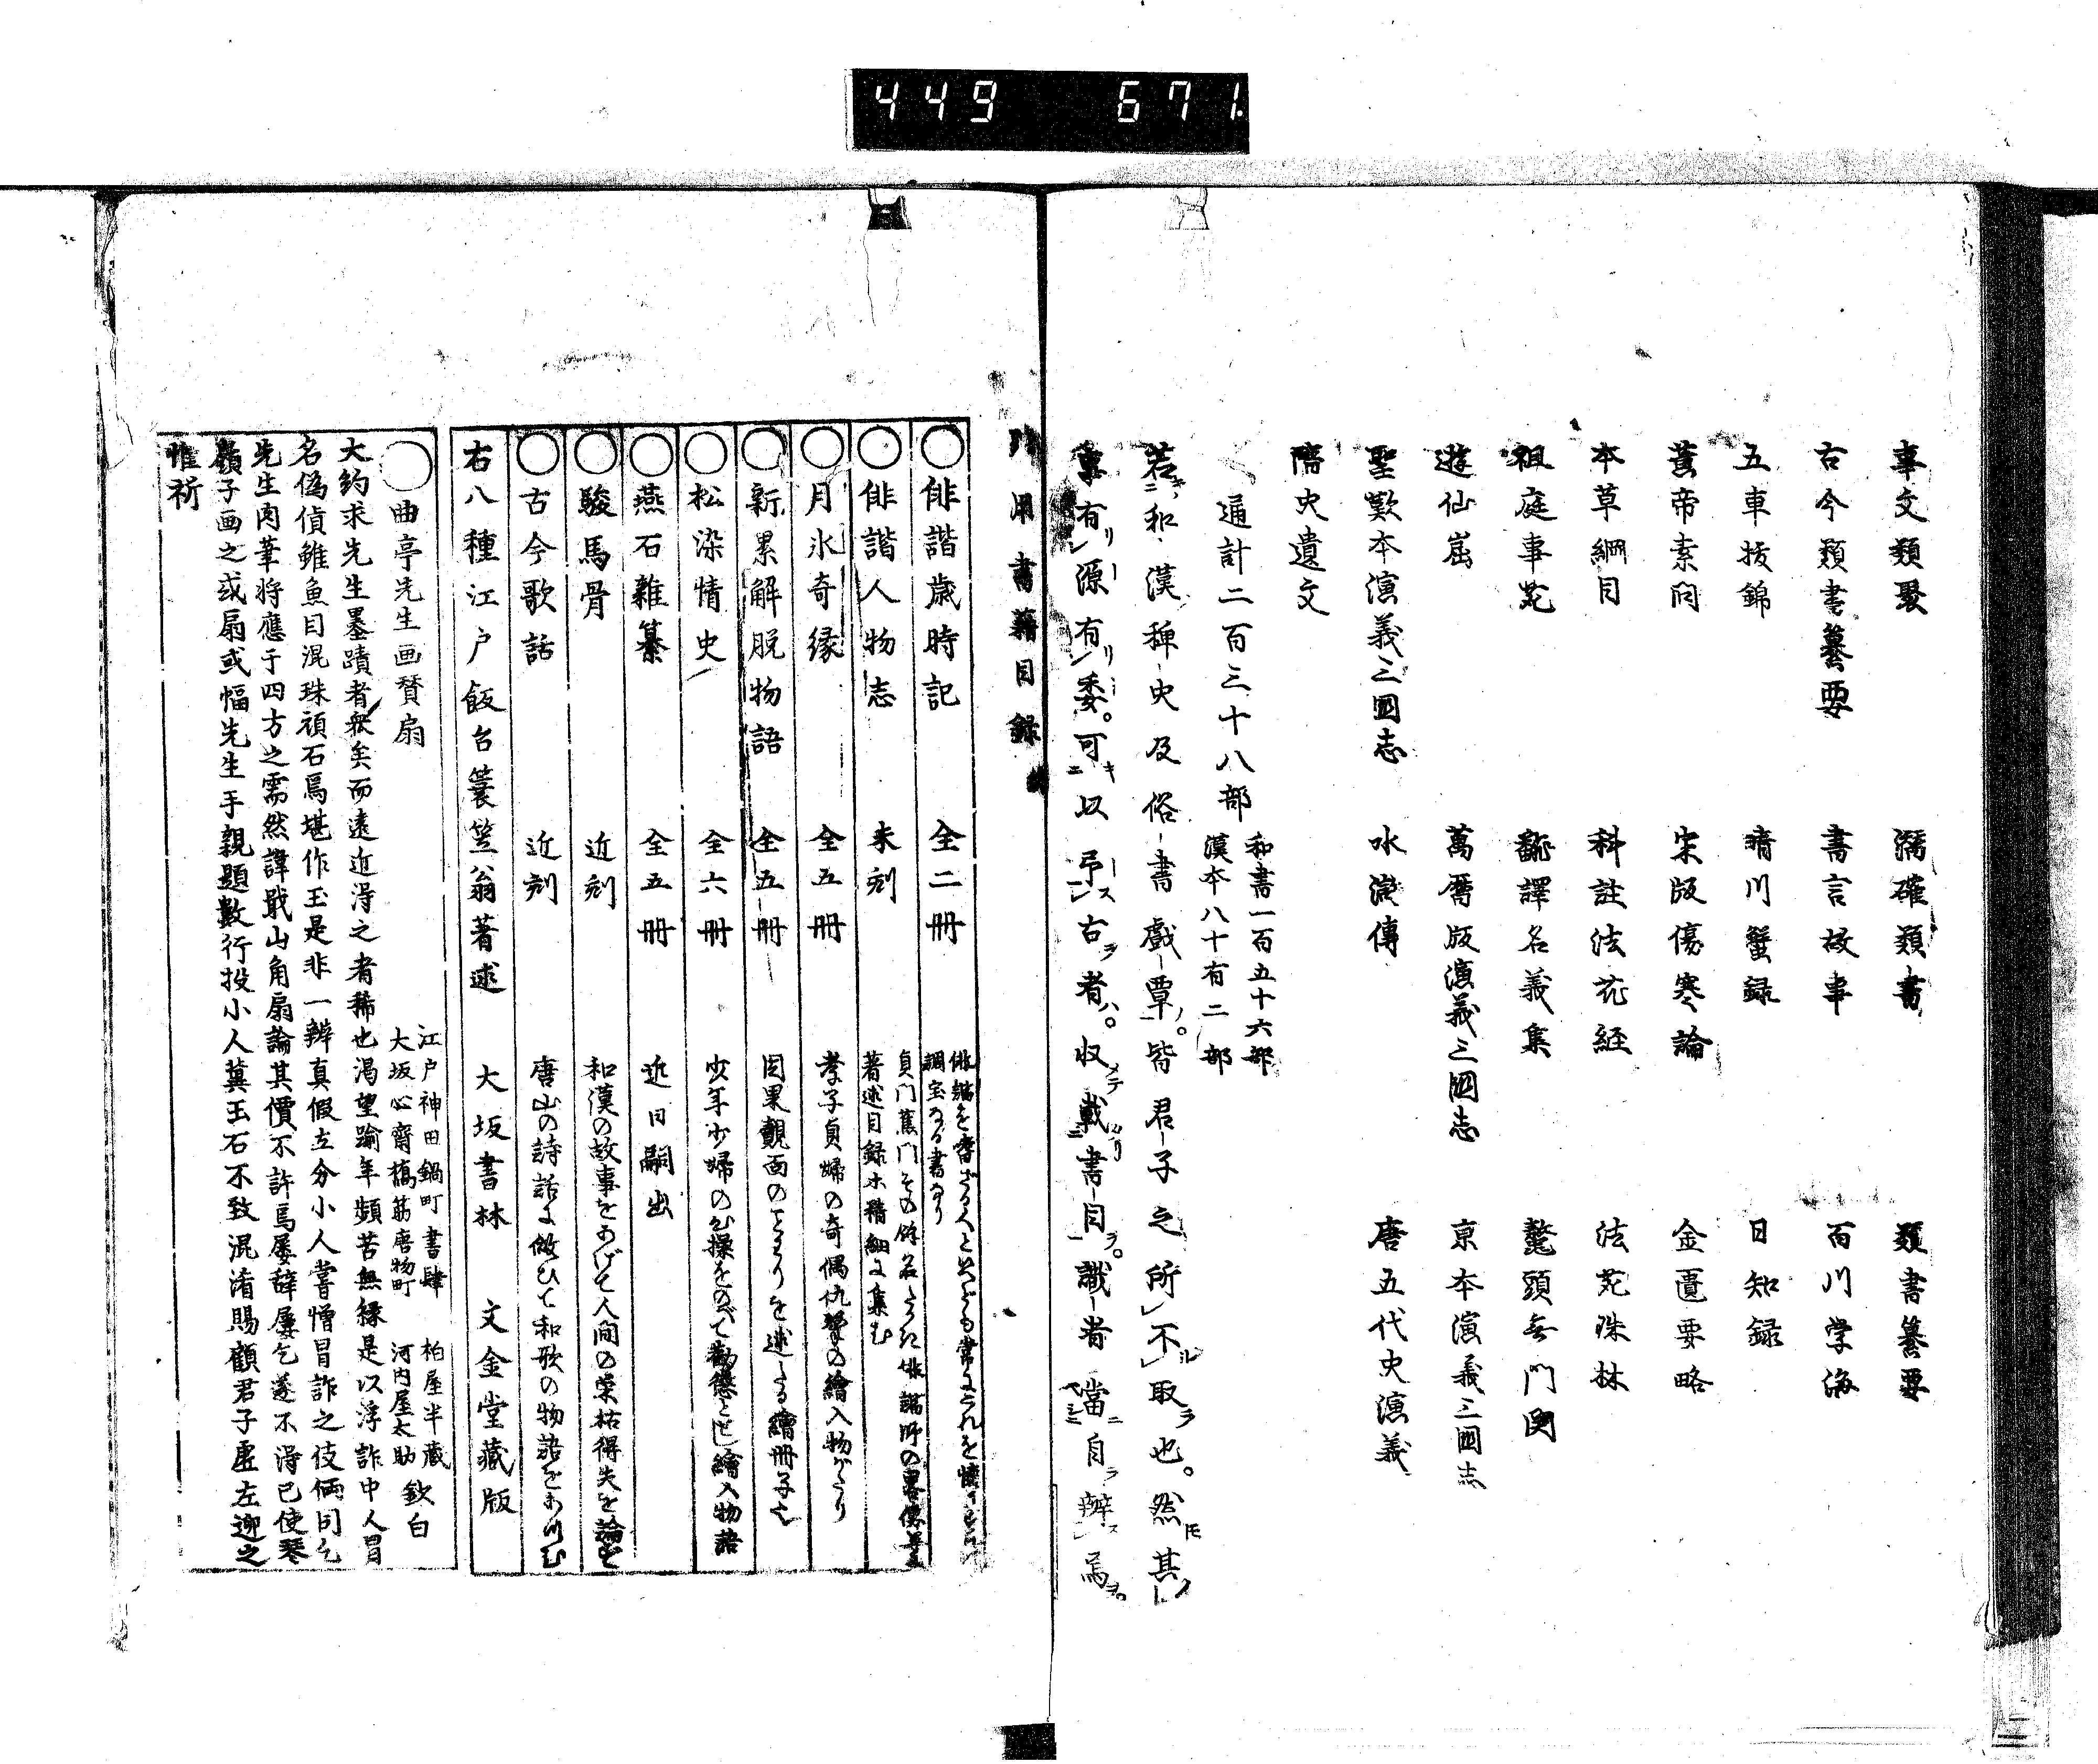 449 671.
事文類聚 潛確類書 類書纂要
古今類書纂要 書言故事 百川学海
五車抜錦 晴川蟹録 日知録
黄帝素问 宋版傷寒論 金匱要略
本草綱目 科註法花経 法苑珠林
祖庭事苑 翻譯名義集 鼇頭無門関
遊仙窟 萬暦版演義三国志 京本演義三国志
聖歎本演義三國志 水滸傳 唐五代史演義
隋史遺文
通計二百三十八部 和書一百五十六部
漢本八十有二部
若和漢稗史及俗書戯覃。皆君子之所不取也。然其
事有源有委。可以弔古者。収載書目。識者當自辨焉。
引用書籍目録
○俳諧歳時記 全二冊
○俳諧人物志 未刻
著述目録亦精細に集む
○月氷奇縁 全五冊 孝子貞婦の奇偶仇撃の繪入物がたり
○新累解脱物語 全五冊 因果覿面のことわりを述たる繪冊子也
○松染情史 全六冊
○燕石雜纂 全五冊 近日嗣出
○駿馬骨 近刻 和漢の故事をあげて人间の栄枯得失を論ず
○古今歌話 近刻 唐山の詩話に倣ひて和歌の物語をあつむ
右八種江戸飯台簑笠翁著述 大坂書林 文金堂藏版
○曲亭先生画賛扇 江戸神田鍋町書肆 柏屋半藏
大坂心齋橋筋唐物町 河内屋太助 欽白
大約求先生墨蹟者衆矣而遠近得之者稀也渇望踰年頻苦無縁是以浮詐中人冒
名偽偵雖魚目混珠頑石焉堪作玉是非一辨真假立分小人嘗憎冒詐之伎倆同乞
先生肉筆将應于四方之需然譚戢山角扇論其價不許焉屡辞屡乞遂不得已使琴
嶺子画之或扇或幅先生手親題数行投小人冀玉石不致混淆賜顧君子虚左迎之
惟祈